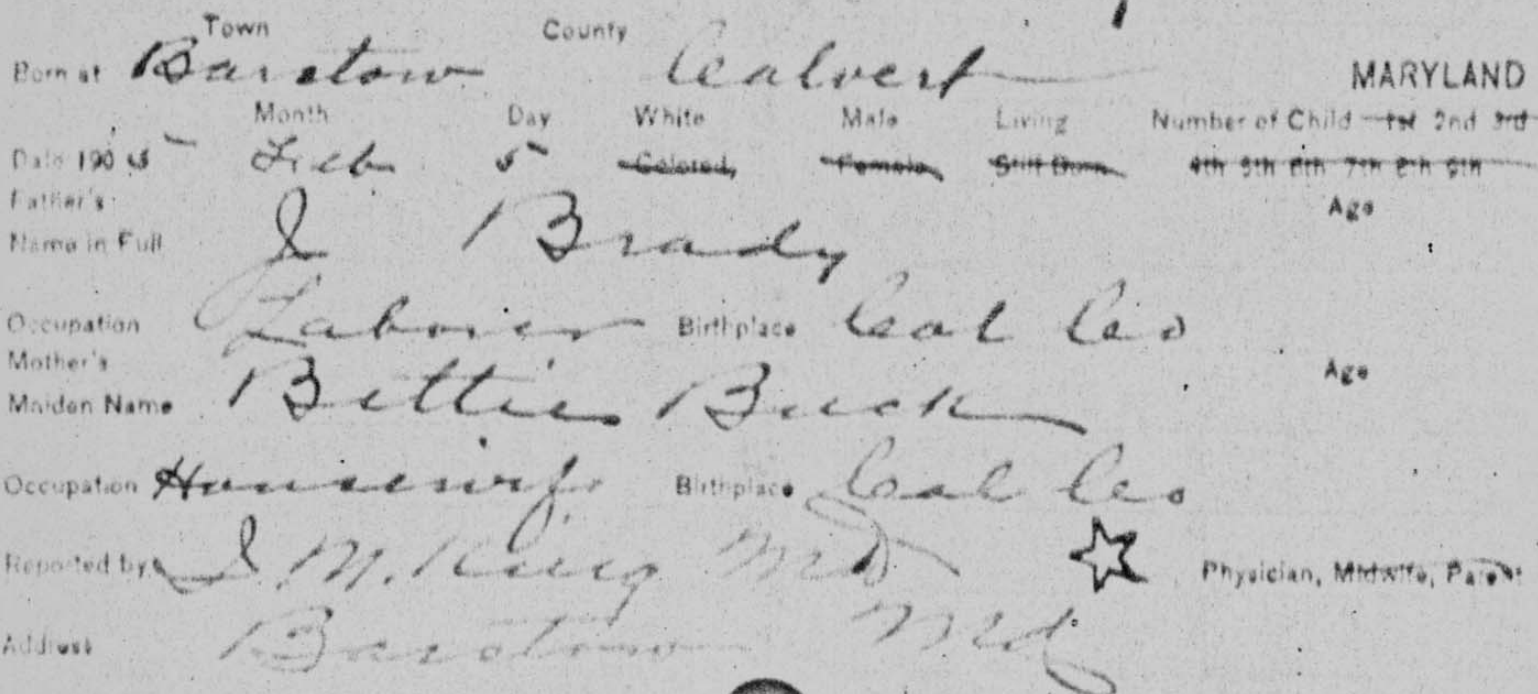 Town County
Born at Barstow Calvert MARYLAND
Month Day White Male Living Number of Child 1st 2nd 3rd
Date 190 5 Feb 5 Colored, Female, Still Born 4th 5th 6th 7th 8th 9th
Father's Age
Name in Full J Brady
Occupation Laborer Birthplace Cal Co
Mother's Age
Maiden Name Bettie Buck
Occupation Housewife Birthplace Cal Co
Reported by J M. King MD Physician, Midwife, Parent
Address Barstow Md